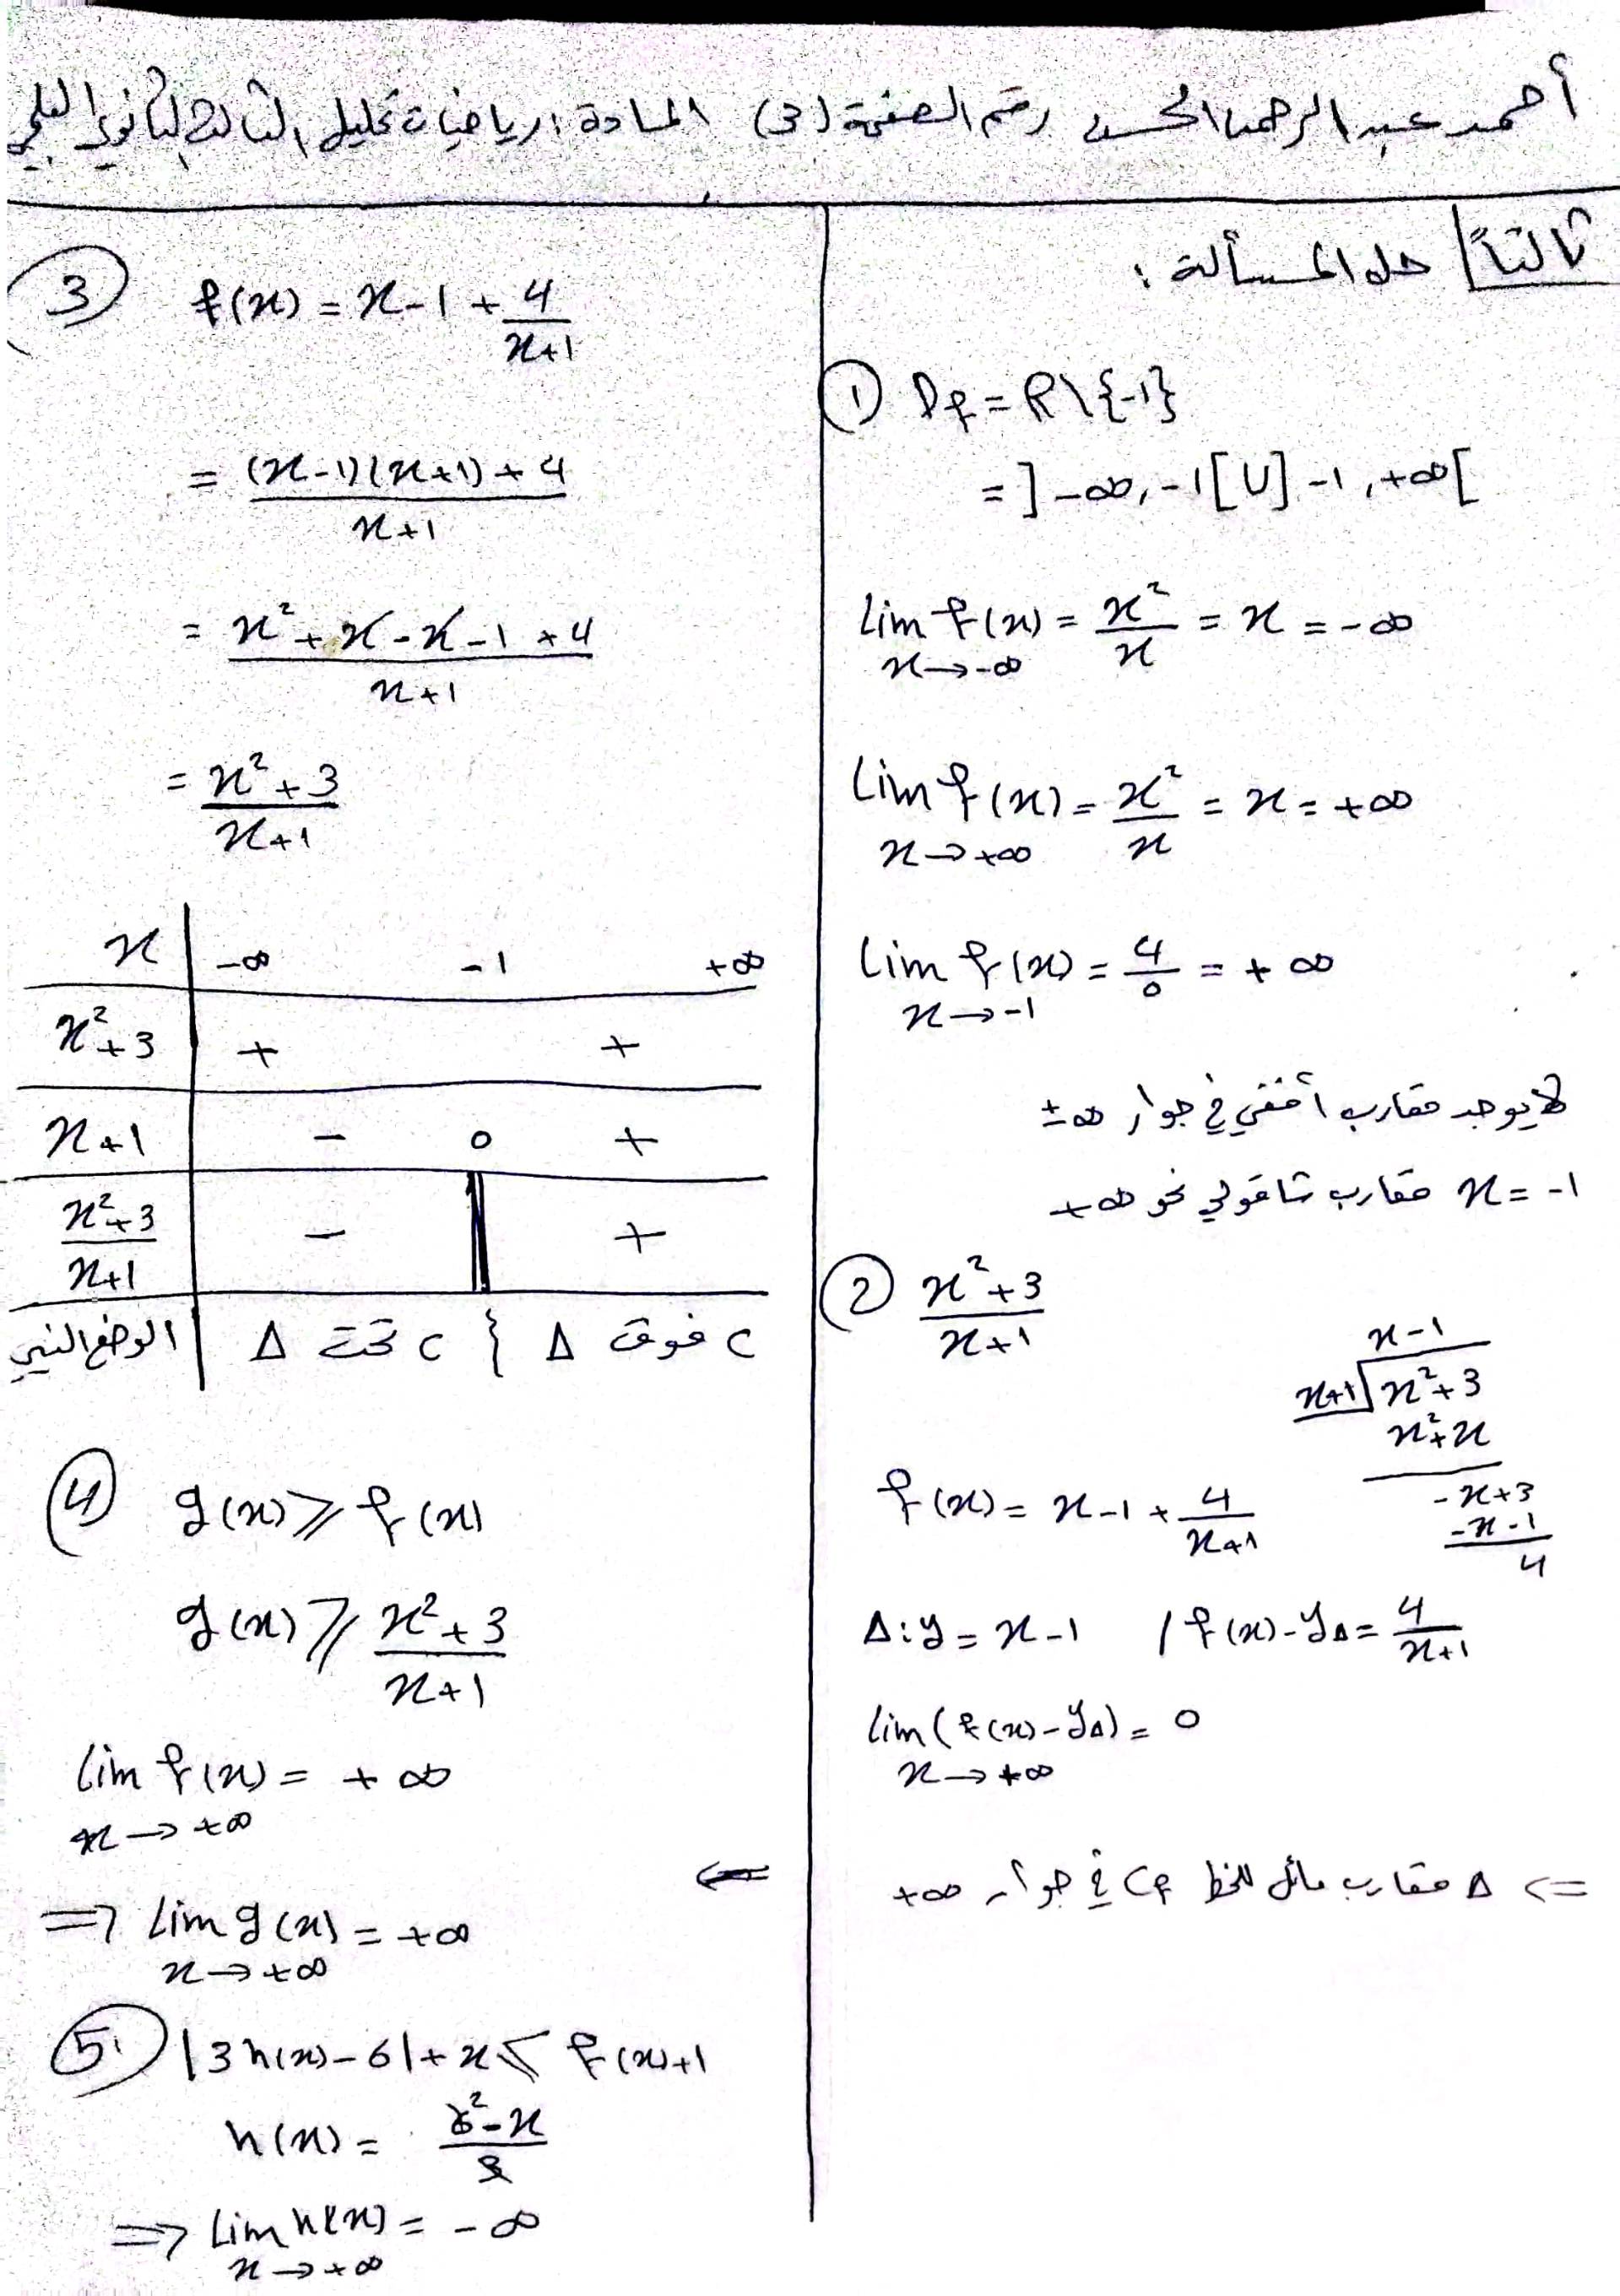 أحمد عبد الرحمن الحسن رقم الصفحة (3) المادة: رياضيات تحليل الثالث الثانوي العلمي
ثالثاً حل المسألة:
① Df = R\{-1}
= ]-∞, -1[ U ]-1, +∞[
lim f(x) = x²/x = x = -∞
x→-∞
lim f(x) = x²/x = x = +∞
x→+∞
lim f(x) = 4/0 = +∞
x→-1
لا يوجد مقارب أفقي في جوار ±∞
x = -1 مقارب شاقولي نحو +∞
② x²+3 / x+1
x-1
x+1 x²+3
x²+x
-x+3
-x-1
4
f(x) = x-1 + 4/x+1
Δ: y = x-1 / f(x)-yΔ = 4/x+1
lim (f(x)-yΔ) = 0
x→+∞
=> Δ مقارب مائل للخط Cf في جوار +∞
③ f(x) = x-1 + 4/x+1
= (x-1)(x+1)+4 / x+1
= x²+x-x-1+4 / x+1
= x²+3 / x+1
x -∞ -1 +∞
x²+3 + +
x+1 - 0 +
x²+3 / x+1 - || +
الوضع النسبي C تحت Δ } C فوق Δ
④ g(x) ≥ f(x)
g(x) ≥ x²+3 / x+1
lim f(x) = +∞
x→+∞
←
=> lim g(x) = +∞
x→+∞
⑤ |3h(x)-6|+x ≤ f(x)+1
h(x) =
=> lim h(x) = -∞
x→+∞